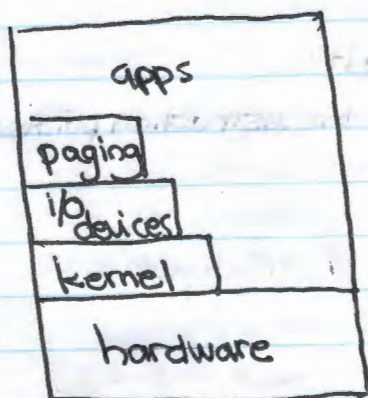 apps
paging
i/o
devices
kernel
hardware